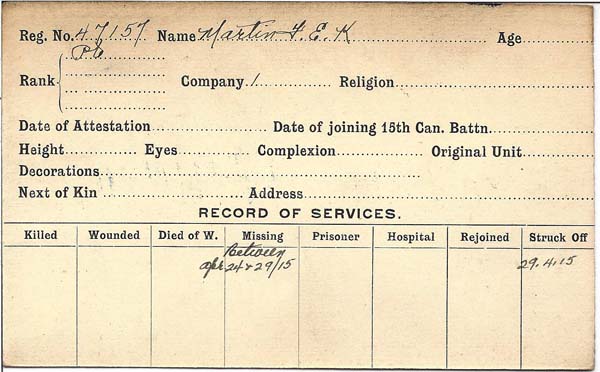 Reg. No. 47157 Name Martin F. E. K Age
Pte
Rank Company 1 Religion
Date of Attestation Date of joining 15th Can. Battn.
Height Eyes Complexion Original Unit
Decorations
Next of Kin Address
RECORD OF SERVICES.
Killed Wounded Died of W. Missing Prisoner Hospital Rejoined Struck Off
between
apr 24 & 29/15 29.4.15